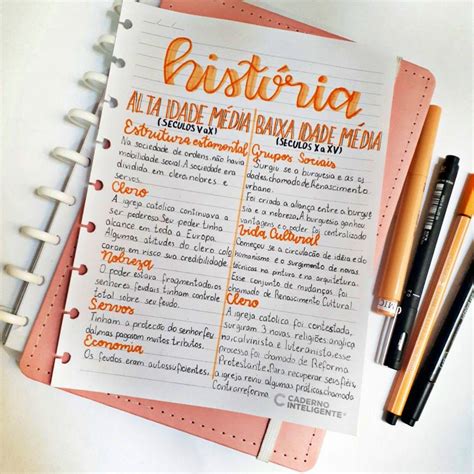 história
ALTA IDADE MÉDIA
(SECULOS V a X)
Estrutura estamental
Na sociedade de ordens não havia
mobilidade social. A sociedade era
dividida em clero, nobres e
servos.
Clero
A igreja catolica continuava a
ser poderosa. Seu poder tinha
alcance em toda a Europa.
Algumas atitudes do clero colo
caram em risco sua credibilidade
Nobreza
O poder estava fragmentado, os
senhores feudais tinham controle
total sobre seu feudo.
Servos
Tinham a protecção do senhor feu
dal mas pagam muitos tributos.
Economia
Os feudos eram autossuficientes.
BAIXA IDADE MÉDIA
(SECULOS X a XV)
Grupos Sociais
Surgiu se a burguesia e as ci
dades chamado de Renascimento
urbano.
Foi criado a aliança entre a burgue
sia e a nobreza, A burguesia ganhou
vantagens e o poder foi centralizado
Vida Cultural
Começou se a circulação de idéia do
humanismo e o surgimento de novas
técnicas na pintura e na arquitetura.
Esse conjunto de mudanças foi
chamado de Renascimento Cultural.
Clero
A igreja catolica foi contestada,
surgiram 3 novas religiões, anglica
no, calvinista e luteranista, esse
processo foi chamado de Reforma
Protestante. Para recuperar seus fiéis,
a igreja reviu algumas práticas, chamado
Contrarreforma.
CADERNO
INTELIGENTE